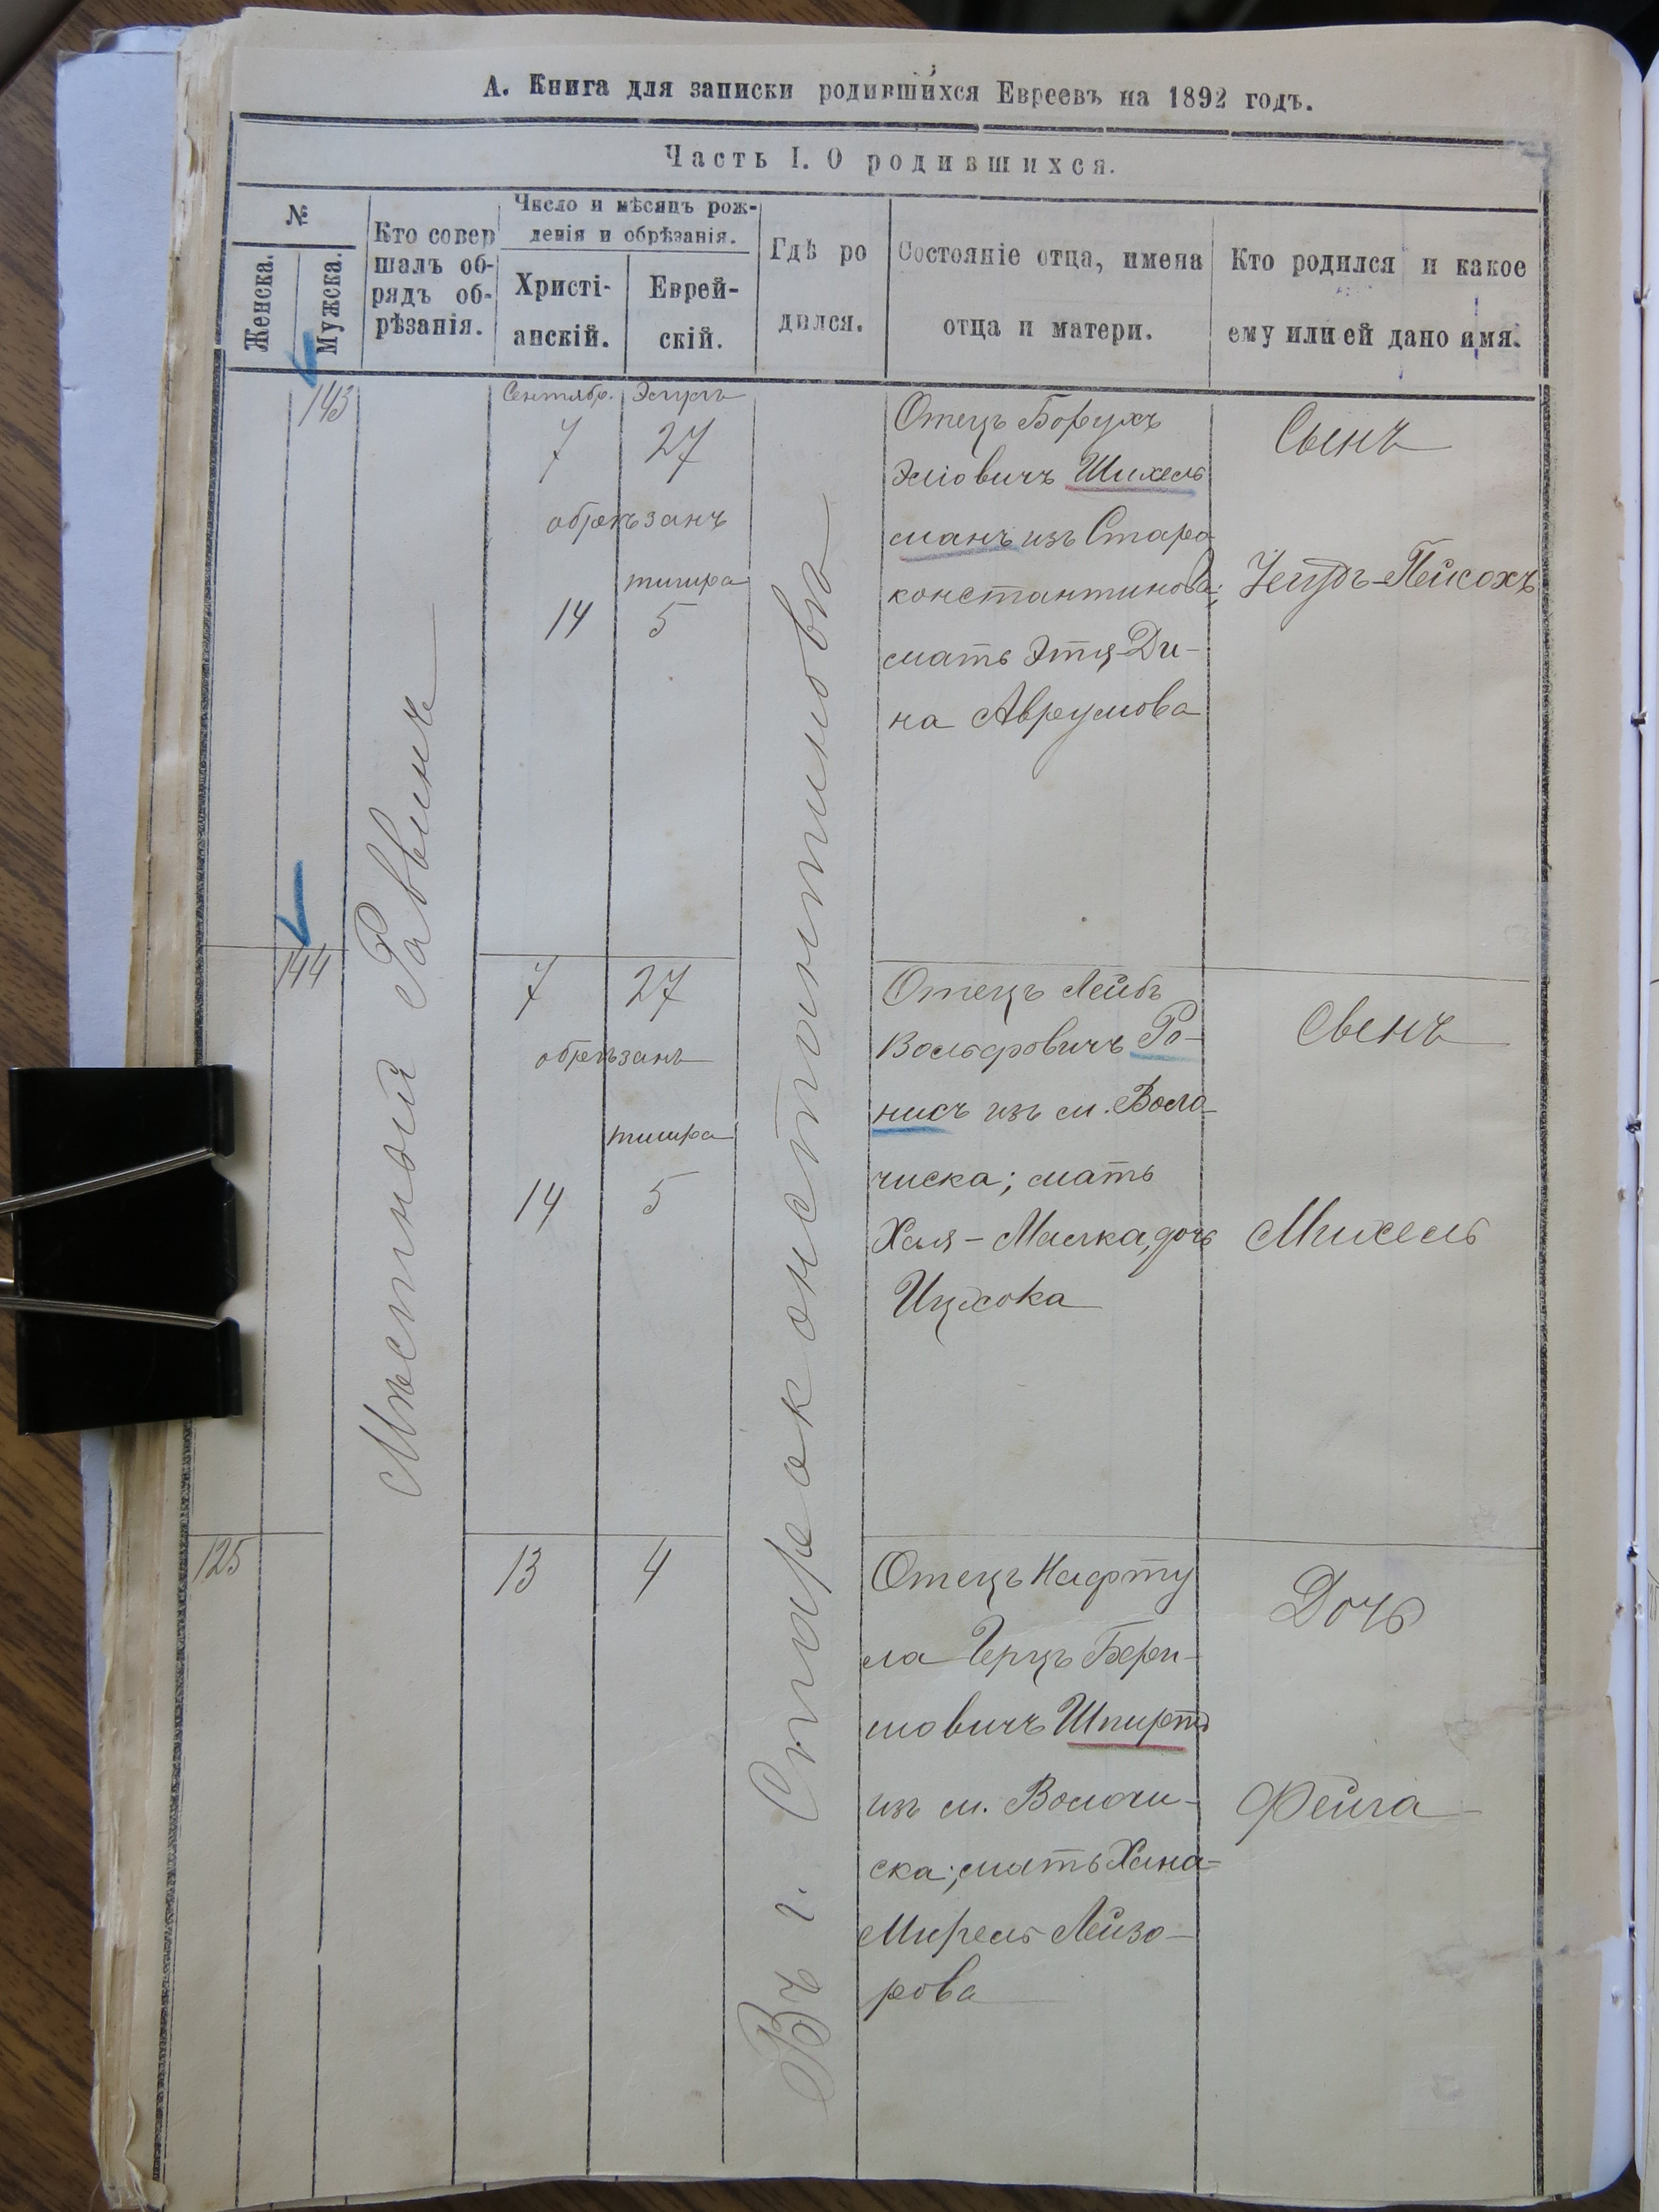 А. Книга для записки родившихся Евреевъ на 1892 годъ.
Часть I. О родившихся.
№
Женска.
Мужска.
Кто совер
шалъ об-
рядъ об-
рѣзанія.
Число и мѣсяцъ рож-
денія и обрѣзанія.
Христі-
анскій.
Еврей-
скій.
Гдѣ ро
дился.
Состояніе отца, имена
отца и матери.
Кто родился и какое
ему или ей дано имя.
Мѣстный Раввинъ
Въ г. Староконстантиновѣ
143
Сентябр. Элулъ
7 27
обрѣзанъ
тишра
14 5
Отецъ Борухъ
Эліовичъ Шихель
манъ изъ Старо
константинова;
мать Этя-Ди-
на Аврумова
Сынъ
-Пейсохъ
144
7 27
обрѣзанъ
тишра
14 5
Отецъ Лейбъ
Вольфовичъ Ро-
нисъ изъ м. Воло
чиска; мать
Хая-Малка, дочь
Ицхока
Сынъ
Михель
125
13 4
Отецъ Нафту
ла Герцъ Бери-
шовичъ Шпиртъ
изъ м. Волочи-
ска; мать Хана-
Мирель Лейзо-
рова
Дочь
Фейга